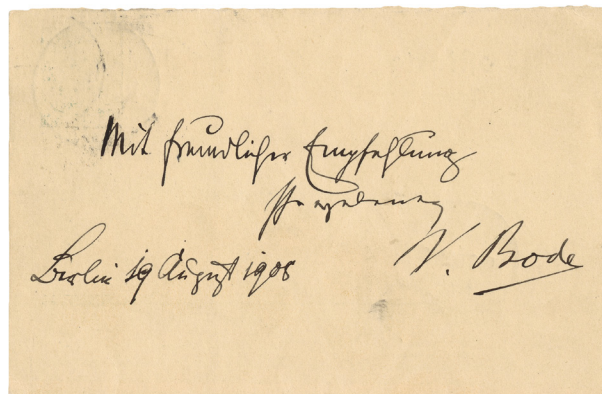 Mit freundlicher Empfehlung
Ihr ergebener
W. Bode
Berlin 19 August 1908